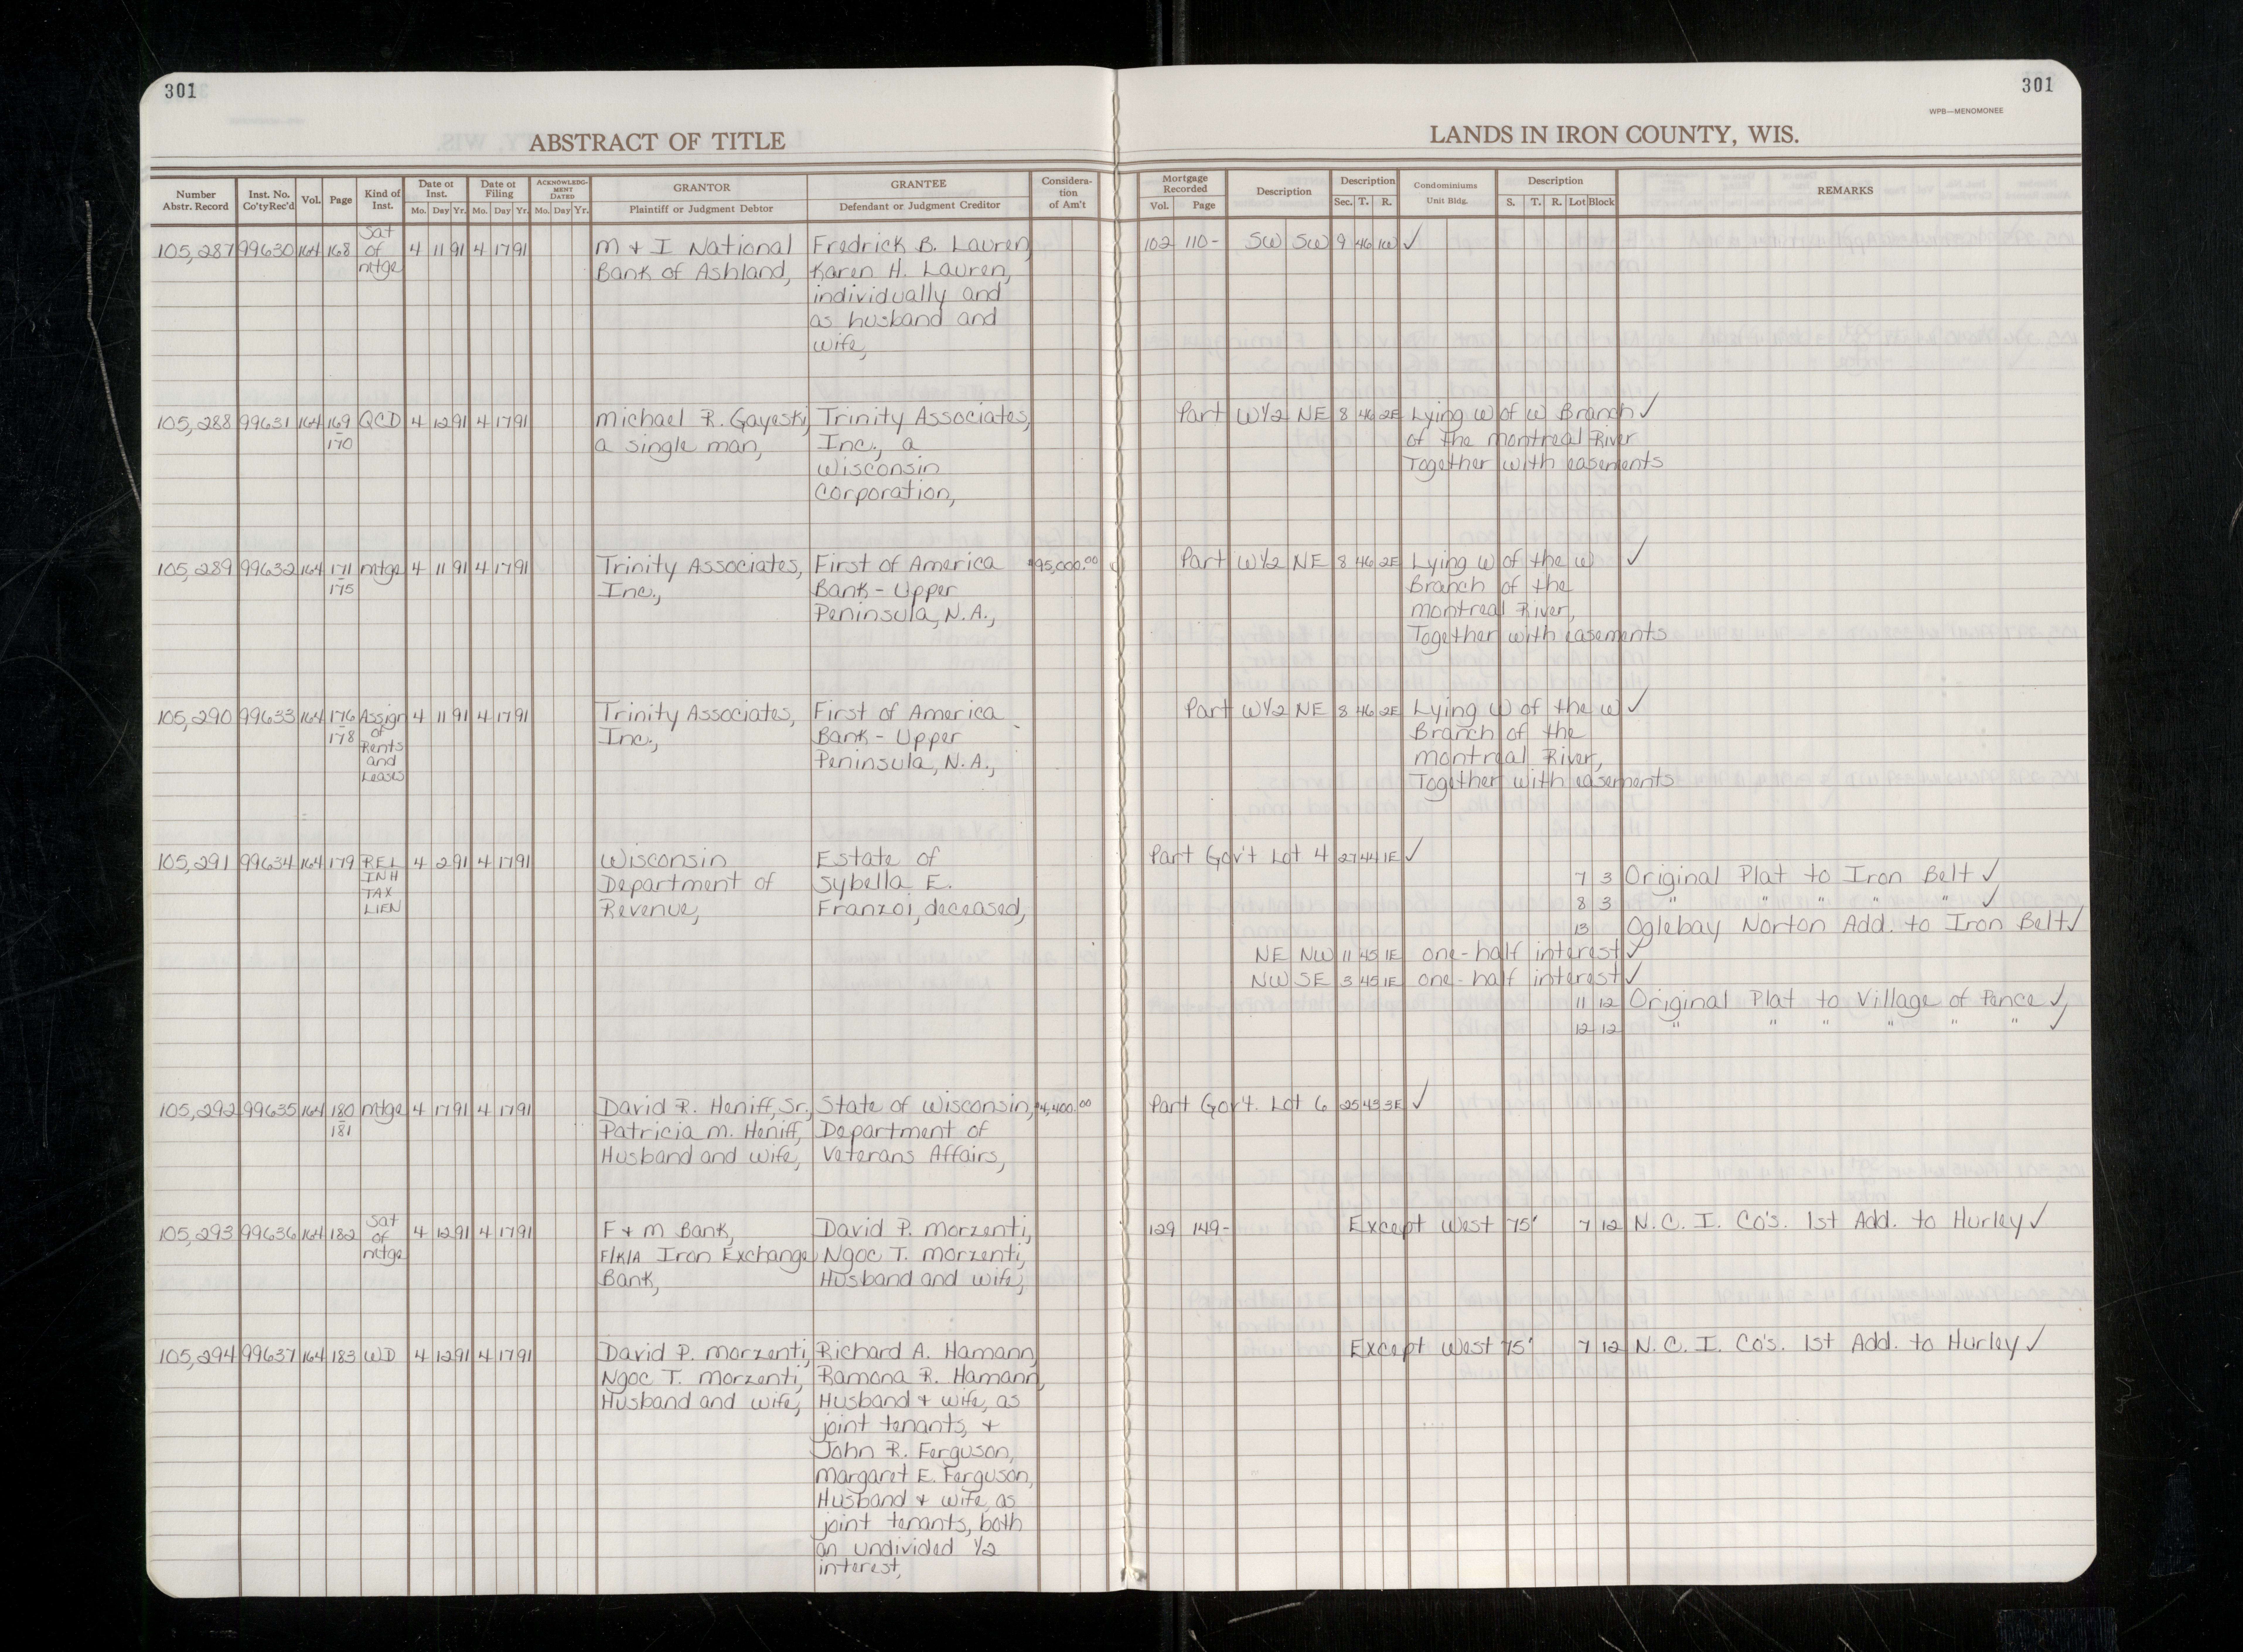 301
301
WPB—MENOMONEE
ABSTRACT OF TITLE
LANDS IN IRON COUNTY, WIS.
Number Abstr. Record | Inst. No. Co'ty Rec'd | Vol. | Page | Kind of Inst. | Date of Inst. Mo. Day Yr. | Date of Filing Mo. Day Yr. | ACKNOWLEDGMENT DATED Mo. Day Yr. | GRANTOR Plaintiff or Judgment Debtor | GRANTEE Defendant or Judgment Creditor | Consideration of Am't | Mortgage Recorded Vol. Page | Description | Description Sec. T. R. | Condominiums Unit Bldg. | Description S. T. R. Lot Block | REMARKS
105,287 99630 164 168 Sat of mtge 4 11 91 4 17 91 M + I National Fredrick B. Lauren, 102 110- SW SW 9 46 1W ✓
Bank of Ashland, Karen H. Lauren,
individually and
as husband and
wife,
105,288 99631 164 169-170 QCD 4 12 91 4 17 91 Michael R. Gayeski, Trinity Associates, Part W½ NE 8 46 2E Lying W of W Branch ✓
a single man, Inc., a of the Montreal River
Wisconsin Together with easements
Corporation,
105,289 99632 164 171-175 mtge 4 11 91 4 17 91 Trinity Associates, First of America $95,000.00 Part W½ NE 8 46 2E Lying W of the W ✓
Inc., Bank - Upper Branch of the
Peninsula, N.A., Montreal River,
Together with easements
105,290 99633 164 176-178 Assign of Rents and Leases 4 11 91 4 17 91 Trinity Associates, First of America Part W½ NE 8 46 2E Lying W of the W ✓
Inc., Bank - Upper Branch of the
Peninsula, N.A., Montreal River,
Together with easements
105,291 99634 164 179 REL INH TAX LIEN 4 2 91 4 17 91 Wisconsin Estate of Part Gov't Lot 4 27 44 1E ✓
Department of Sybella E. 7 3 Original Plat to Iron Belt ✓
Revenue, Franzoi, deceased, 8 3 " " " " " ✓
13 Oglebay Norton Add. to Iron Belt ✓
NE NW 11 45 1E one-half interest ✓
NW SE 3 45 1E one-half interest ✓
11 12 Original Plat to Village of Pence ✓
12 12 " " " " " " ✓
105,292 99635 164 180-181 mtge 4 17 91 4 17 91 David R. Heniff, Sr., State of Wisconsin, $4,400.00 Part Gov't. Lot 6 25 43 3E ✓
Patricia M. Heniff, Department of
Husband and wife, Veterans Affairs,
105,293 99636 164 182 Sat of mtge 4 12 91 4 17 91 F + M Bank, David P. Morzenti, 129 149- Except West 75' 7 12 N. C. I. Co's. 1st Add. to Hurley ✓
F/K/A Iron Exchange Ngoc T. Morzenti,
Bank, Husband and wife,
105,294 99637 164 183 WD 4 12 91 4 17 91 David P. Morzenti, Richard A. Hamann, Except West 75' 7 12 N. C. I. Co's. 1st Add. to Hurley ✓
Ngoc T. Morzenti, Ramona R. Hamann,
Husband and wife, Husband + wife, as
joint tenants, +
John R. Ferguson,
Margaret E. Ferguson,
Husband + wife, as
joint tenants, both
an undivided ½
interest,